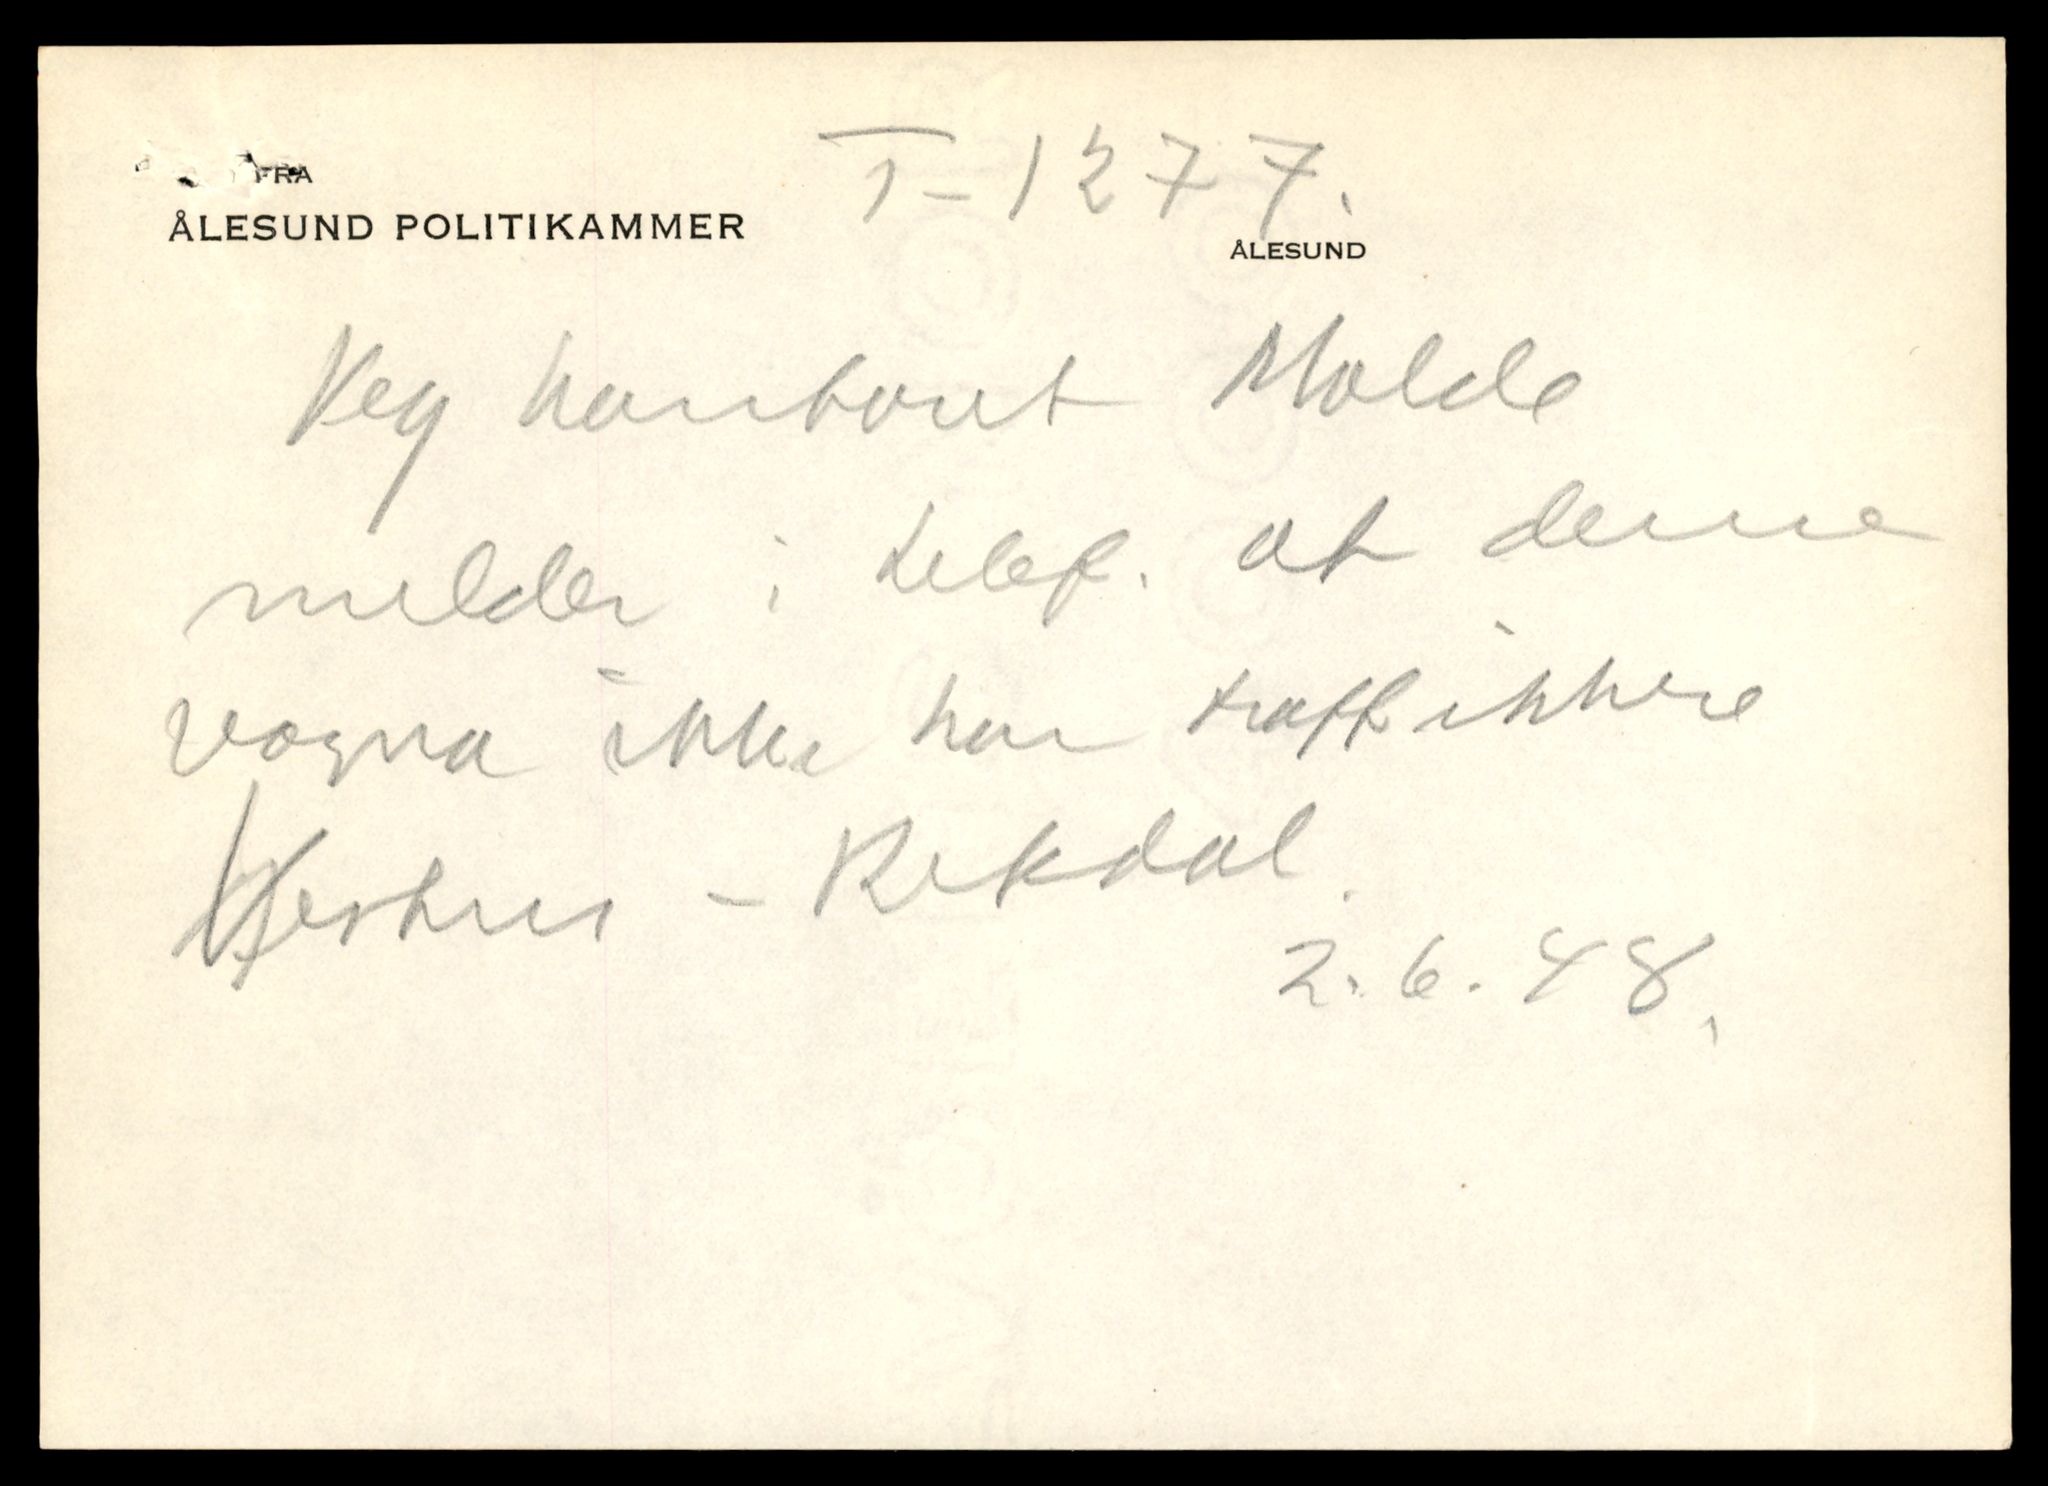 FRA
ÅLESUND POLITIKAMMER
T-1277.
ÅLESUND
Veg kontoret Molde
melder i telef. at denne
vogna ikke har traffikkere
- Rekdal.
2.6.48.